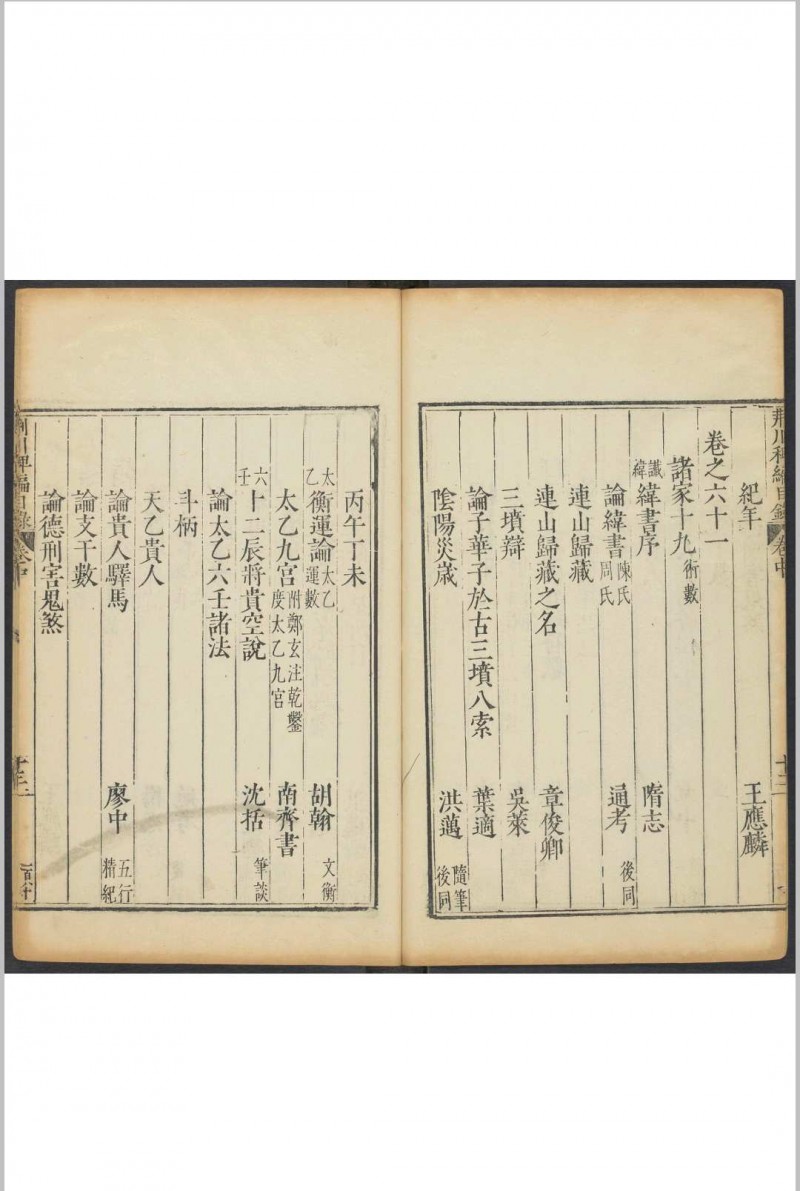 荊川稗編目錄 卷中
紀年 王應麟
卷之六十一
諸家十九 術數
讖緯 緯書序 隋志
論緯書 陳氏 周氏 通考 後同
連山歸藏
連山歸藏之名 章俊卿
三墳辯 吳萊
論子華子於古三墳八索 葉適
陰陽災歲 洪邁 隨筆 後同
丙午丁未
太乙 衡運論 太乙運數 胡翰 文衡
太乙九宮 附鄭玄注乾鑿度太乙九宮 南齊書
六壬 十二辰將貴空說 沈括 筆談
論太乙六壬諸法
斗柄
天乙貴人
論貴人驛馬 廖中 五行精紀
論支干數
論德刑害鬼煞
荊川稗編目錄 卷中